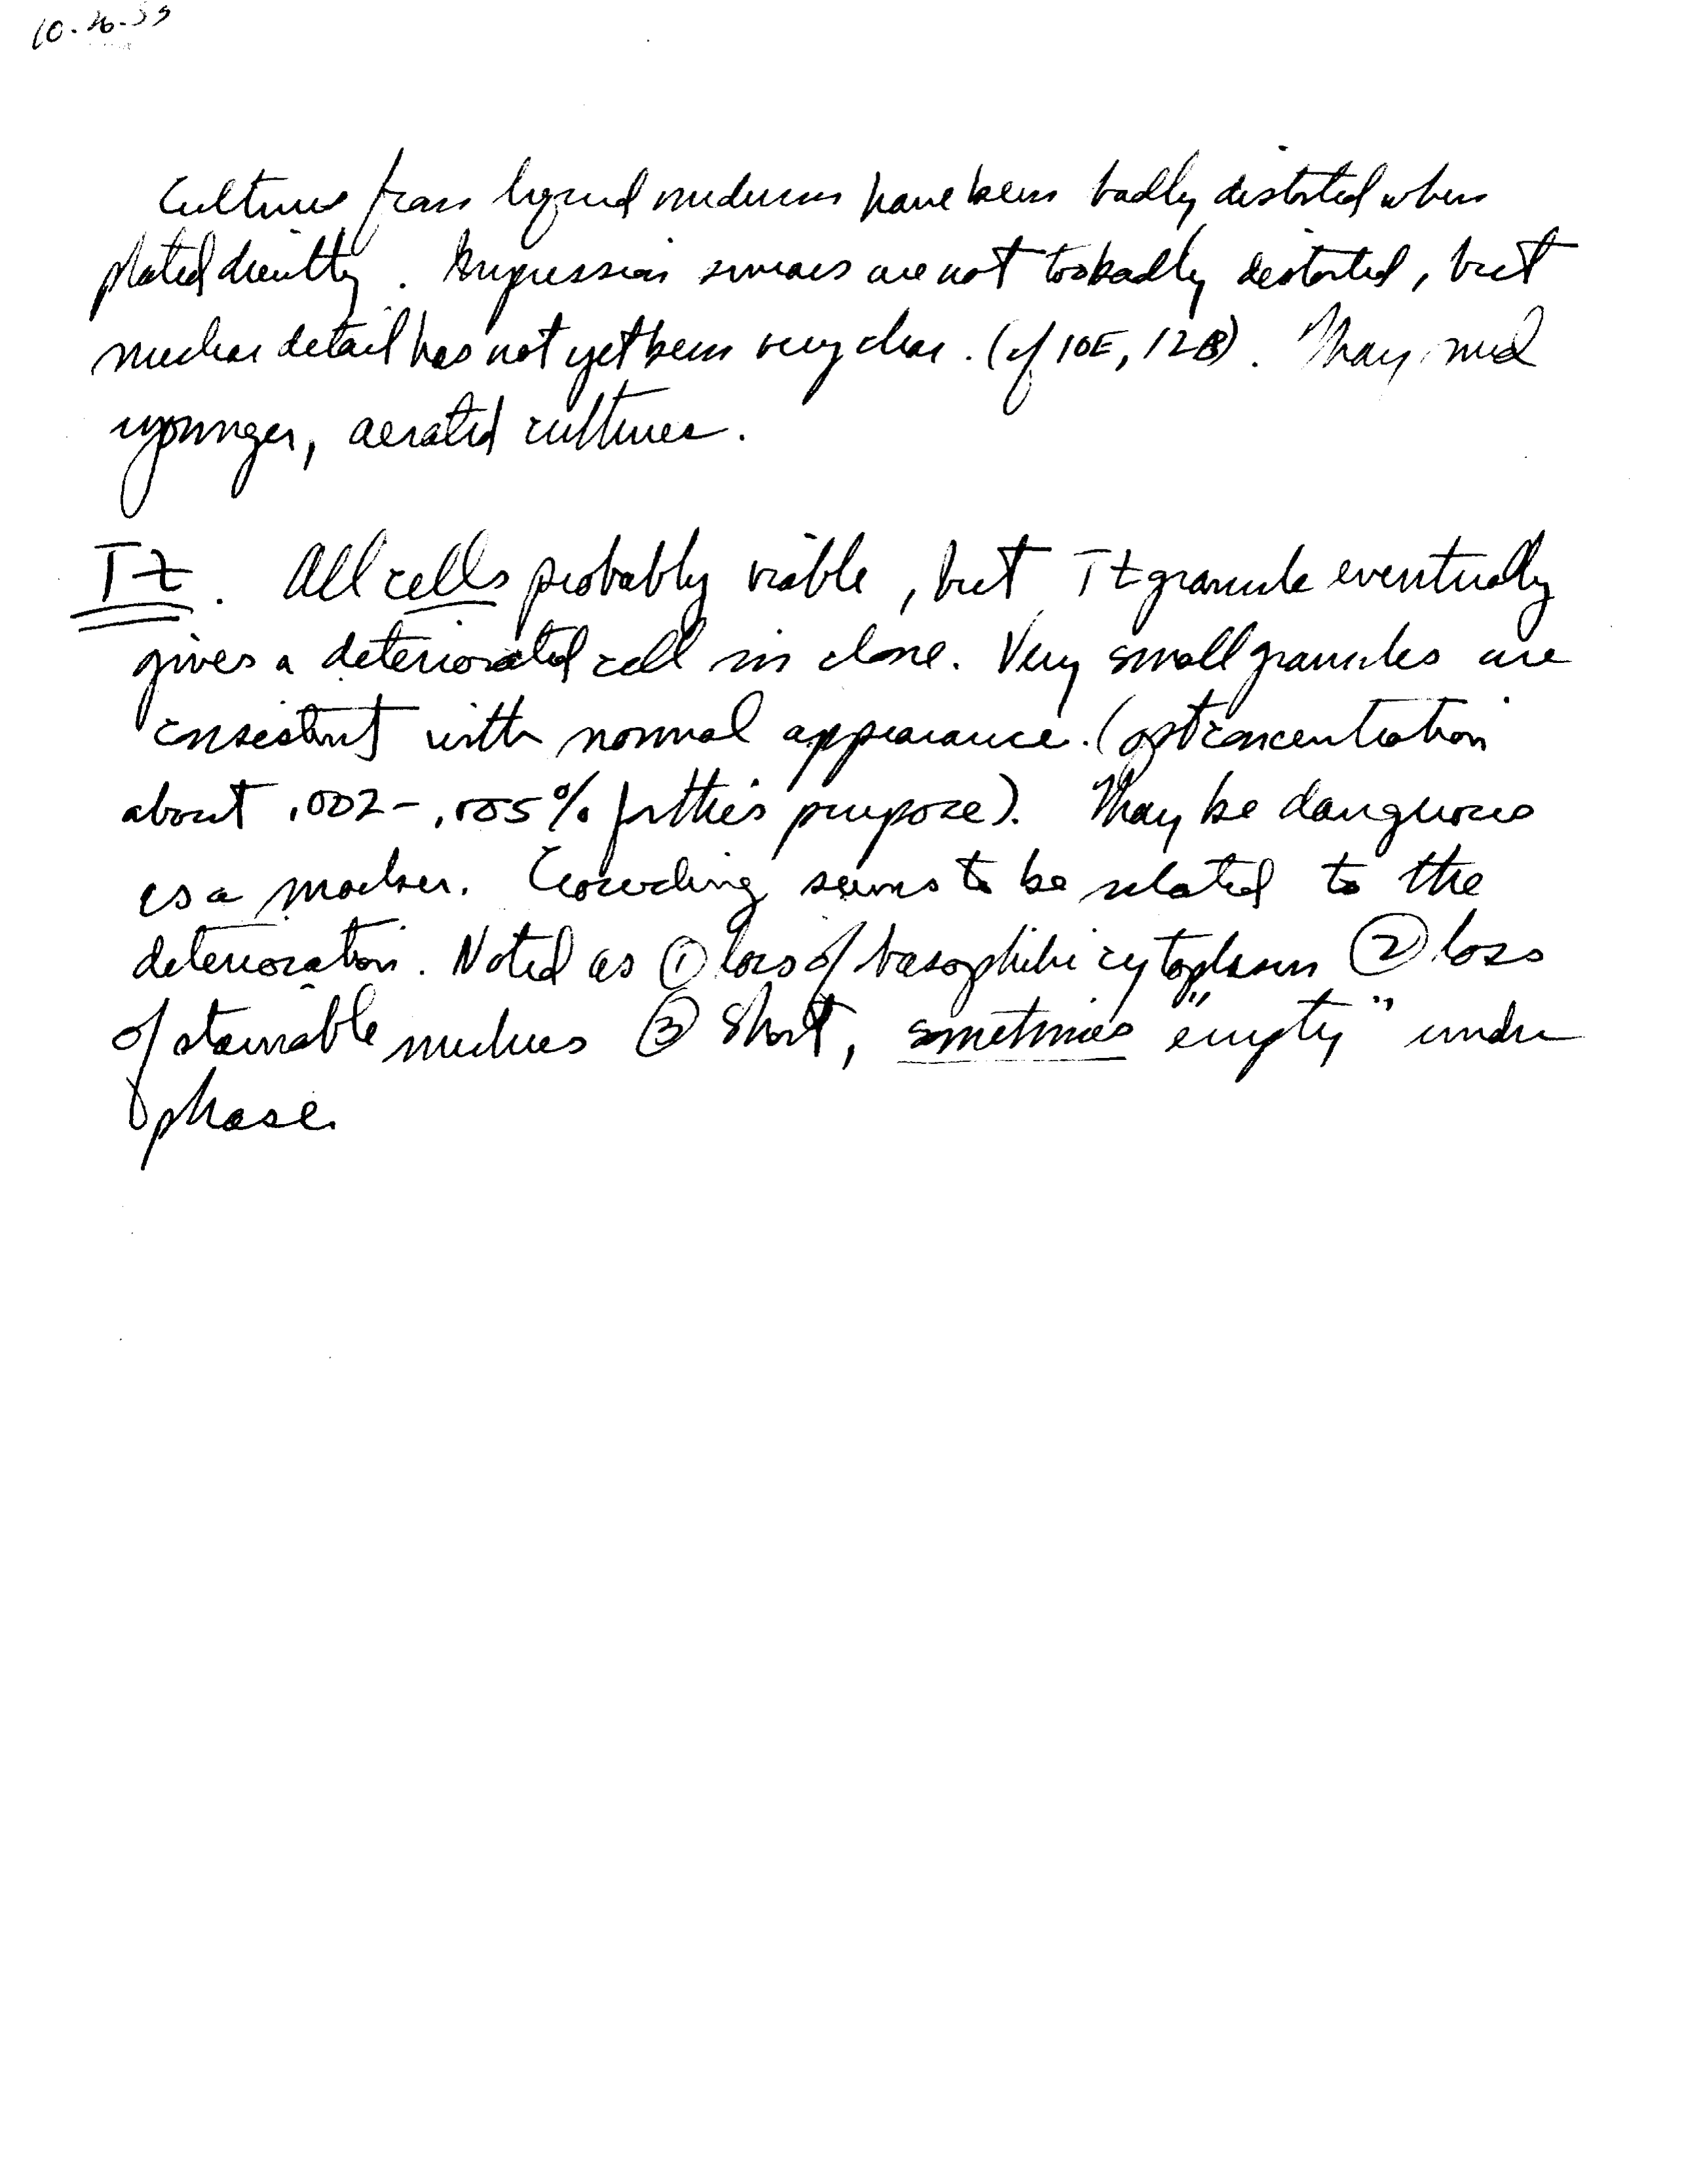 10-26-55
Cultures from liquid medium have been badly distorted when
plated directly. Impression smears are not too badly distorted, but
nuclear detail has not yet been very clear. (cf 10E, 12B). May need
younger, aerated cultures.
Tz. All cells probably viable, but Tz granule eventually
gives a deteriorated cell in clone. Very small granules are
consistent with normal appearance. (opt concentration
about .002-.005% for this purpose). May be dangerous
as a marker. Crowding seems to be related to the
deterioration. Noted as ① loss of basophilic cytoplasm ② loss
of stainable nucleus ③ short, sometimes "empty" under
phase.